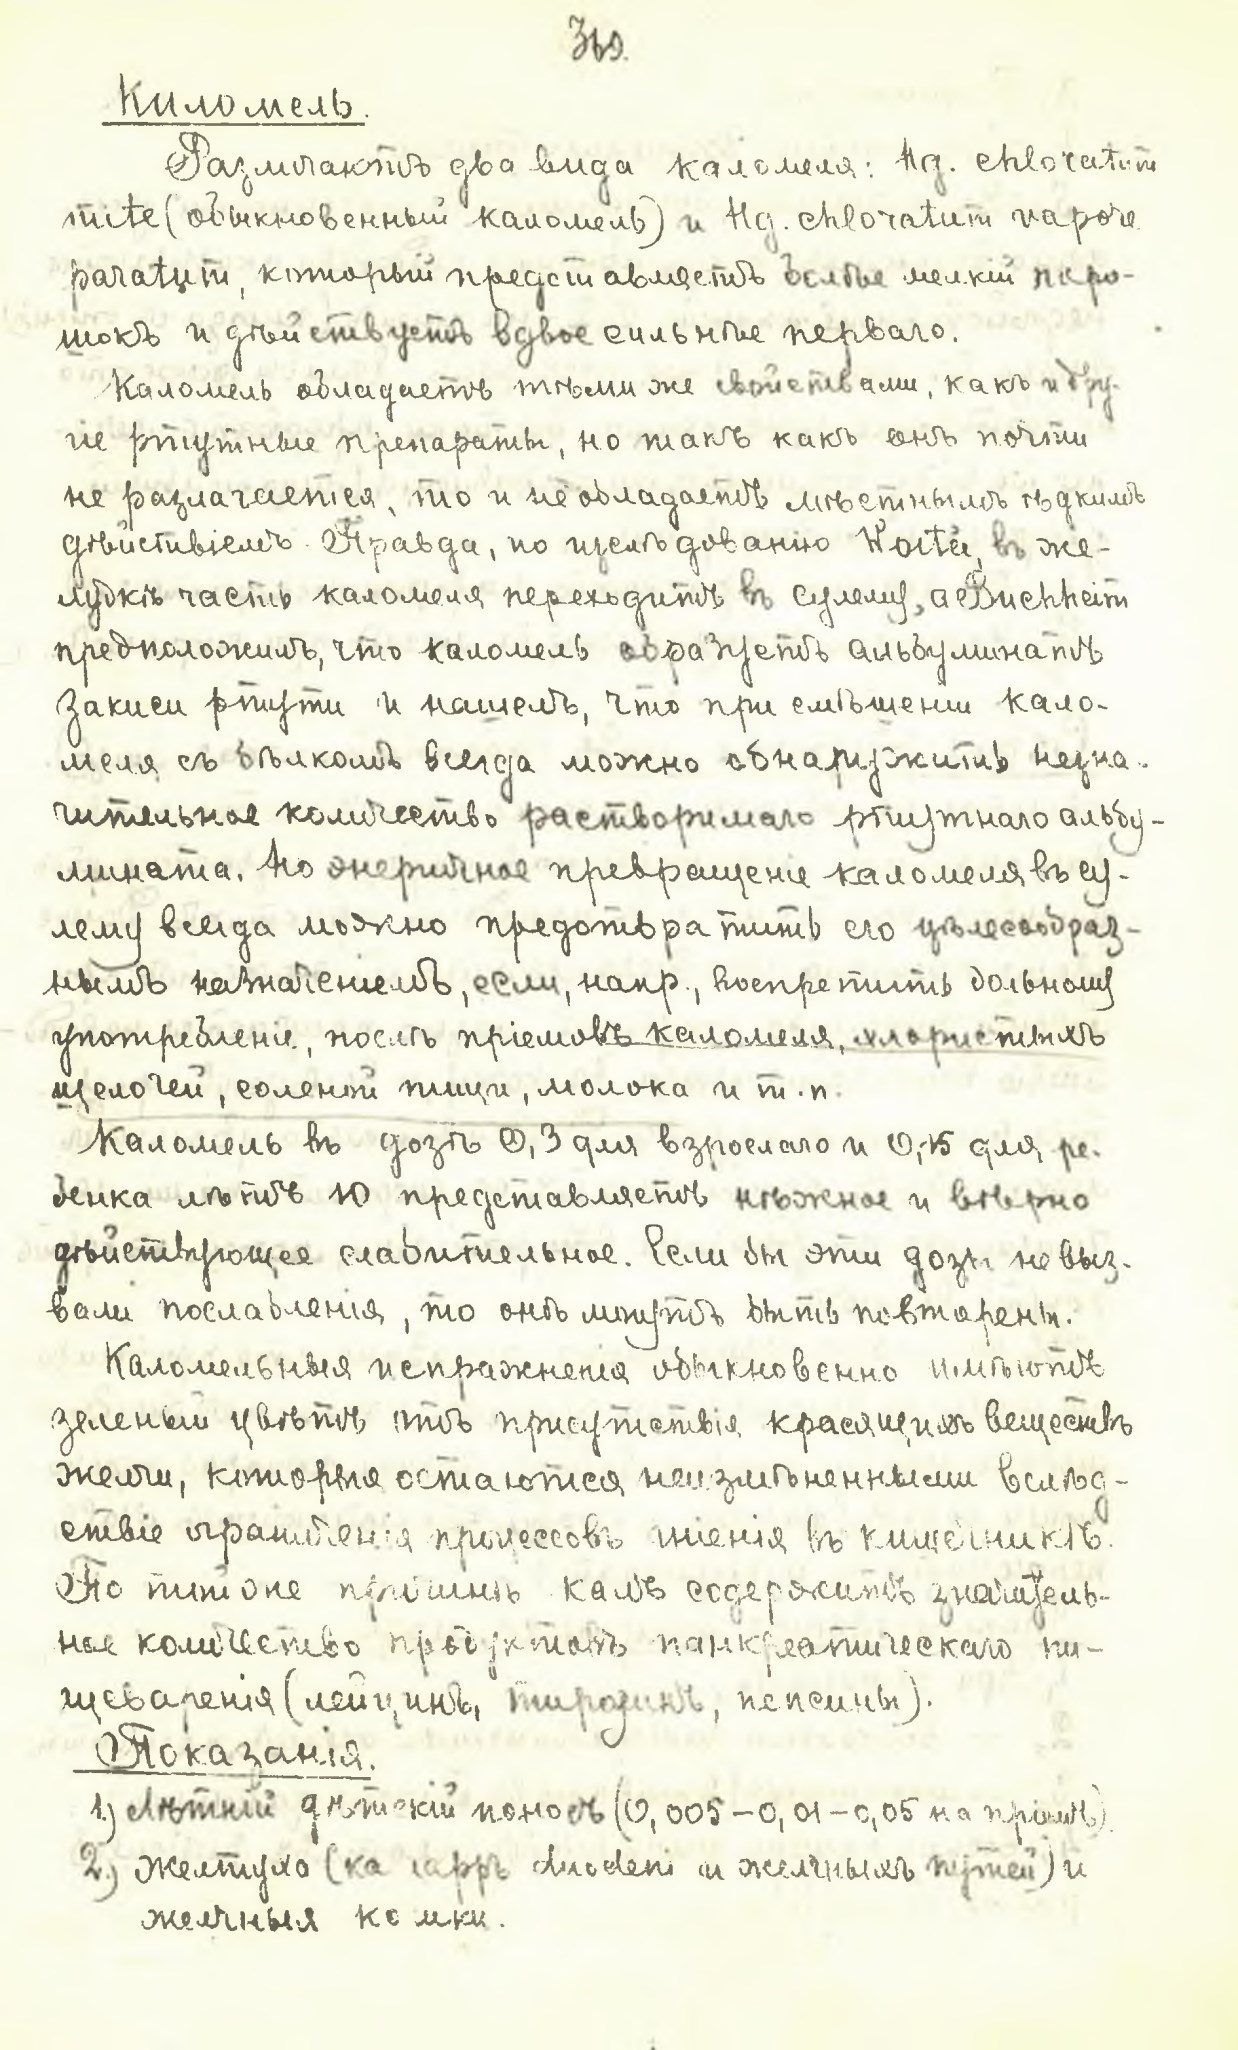 Каломель.
Различаютъ два вида каломеля: Hg. chloratum
mite (обыкновенный каломель) и Hg. chloratum vapore
paratum, который представляетъ болѣе мелкій поро-
шокъ и дѣйствуетъ вдвое сильнѣе перваго.
Каломель обладаетъ тѣми же свойствами, какъ и дру-
гіе ртутные препараты, но такъ какъ онъ почти
не разлагается, то и не обладаетъ мѣстнымъ ѣдкимъ
дѣйствіемъ. Правда, по изслѣдованію Voit'а, въ же-
лудкѣ часть каломеля переходитъ въ сулему, а Buchheim
предположилъ, что каломель образуетъ альбуминатъ
закиси ртути и нашелъ, что при смѣшеніи кало-
меля съ бѣлкомъ всегда можно обнаружить незна-
чительное количество растворимаго ртутнаго альбу-
мината. Но энергичное превращеніе каломеля въ су-
лему всегда можно предотвратить его цѣлесообраз-
нымъ назначеніемъ, если, напр., воспретить больному
употребленіе, послѣ пріемовъ каломеля, хлористыхъ
щелочей, соленой пищи, молока и т. п.
Каломель въ дозѣ 0,3 для взрослаго и 0,15 для ре-
бенка лѣтъ 10 представляетъ нѣжное и вѣрно
дѣйствующее слабительное. Если бы эти дозы не выз-
вали послабленія, то онѣ могутъ быть повторены.
Каломельныя испражненія обыкновенно имѣютъ
зеленый цвѣтъ отъ присутствія красящихъ веществъ
желчи, которыя остаются неизмѣненными вслѣд-
ствіе ограниченія процессовъ гніенія въ кишечникѣ.
По той же причинѣ калъ содержитъ значитель-
ное количество продуктовъ панкреатическаго пи-
щеваренія (лейцинъ, тирозинъ, пепсины).
Показанія.
1.) Лѣтній дѣтскій поносъ (0,005 – 0,01 – 0,05 на пріемъ)
2.) Желтуха (катарръ duodeni и желчныхъ путей) и
желчныя колики.